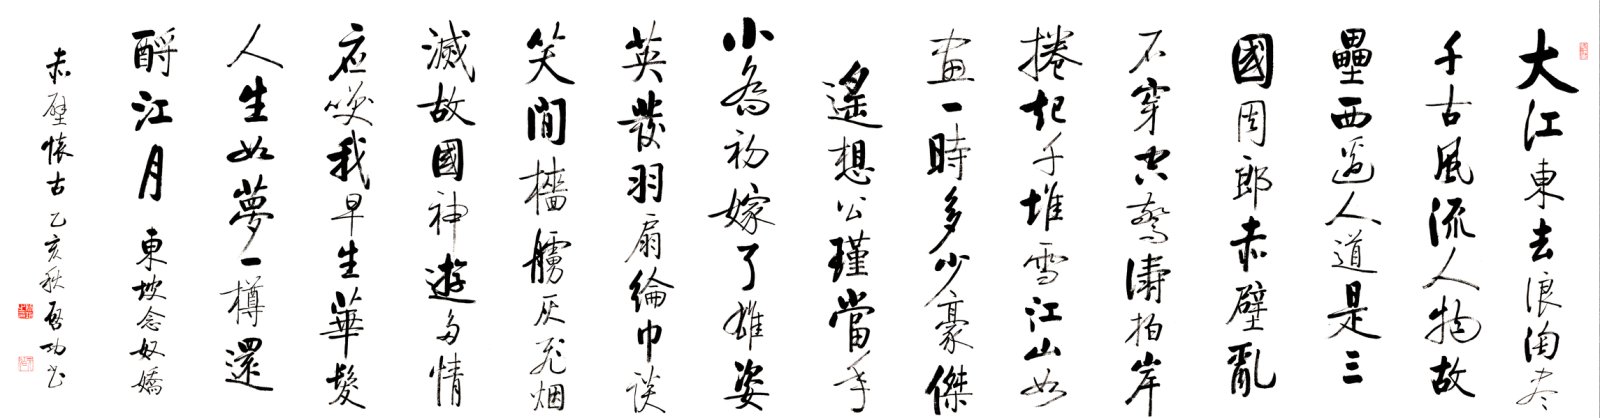 大江東去浪淘尽
千古風流人物故
壘西邊人道是三
國周郎赤壁亂
石穿空驚濤拍岸
捲起千堆雪江山如
畫一時多少豪傑
遙想公瑾當年
小喬初嫁了雄姿
英發羽扇綸巾談
笑間檣艣灰飛烟
滅故國神遊多情
應咲我早生華髮
人生如夢一樽還
酹江月 東坡念奴嬌
赤壁懷古 乙亥秋 啓功書